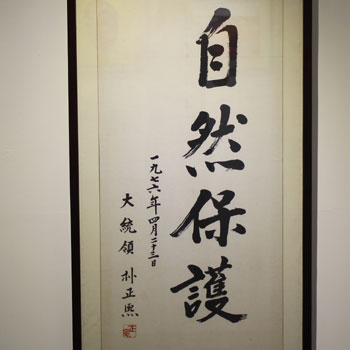 自然保護
一九七六年四月二十三日
大統領 朴正熙